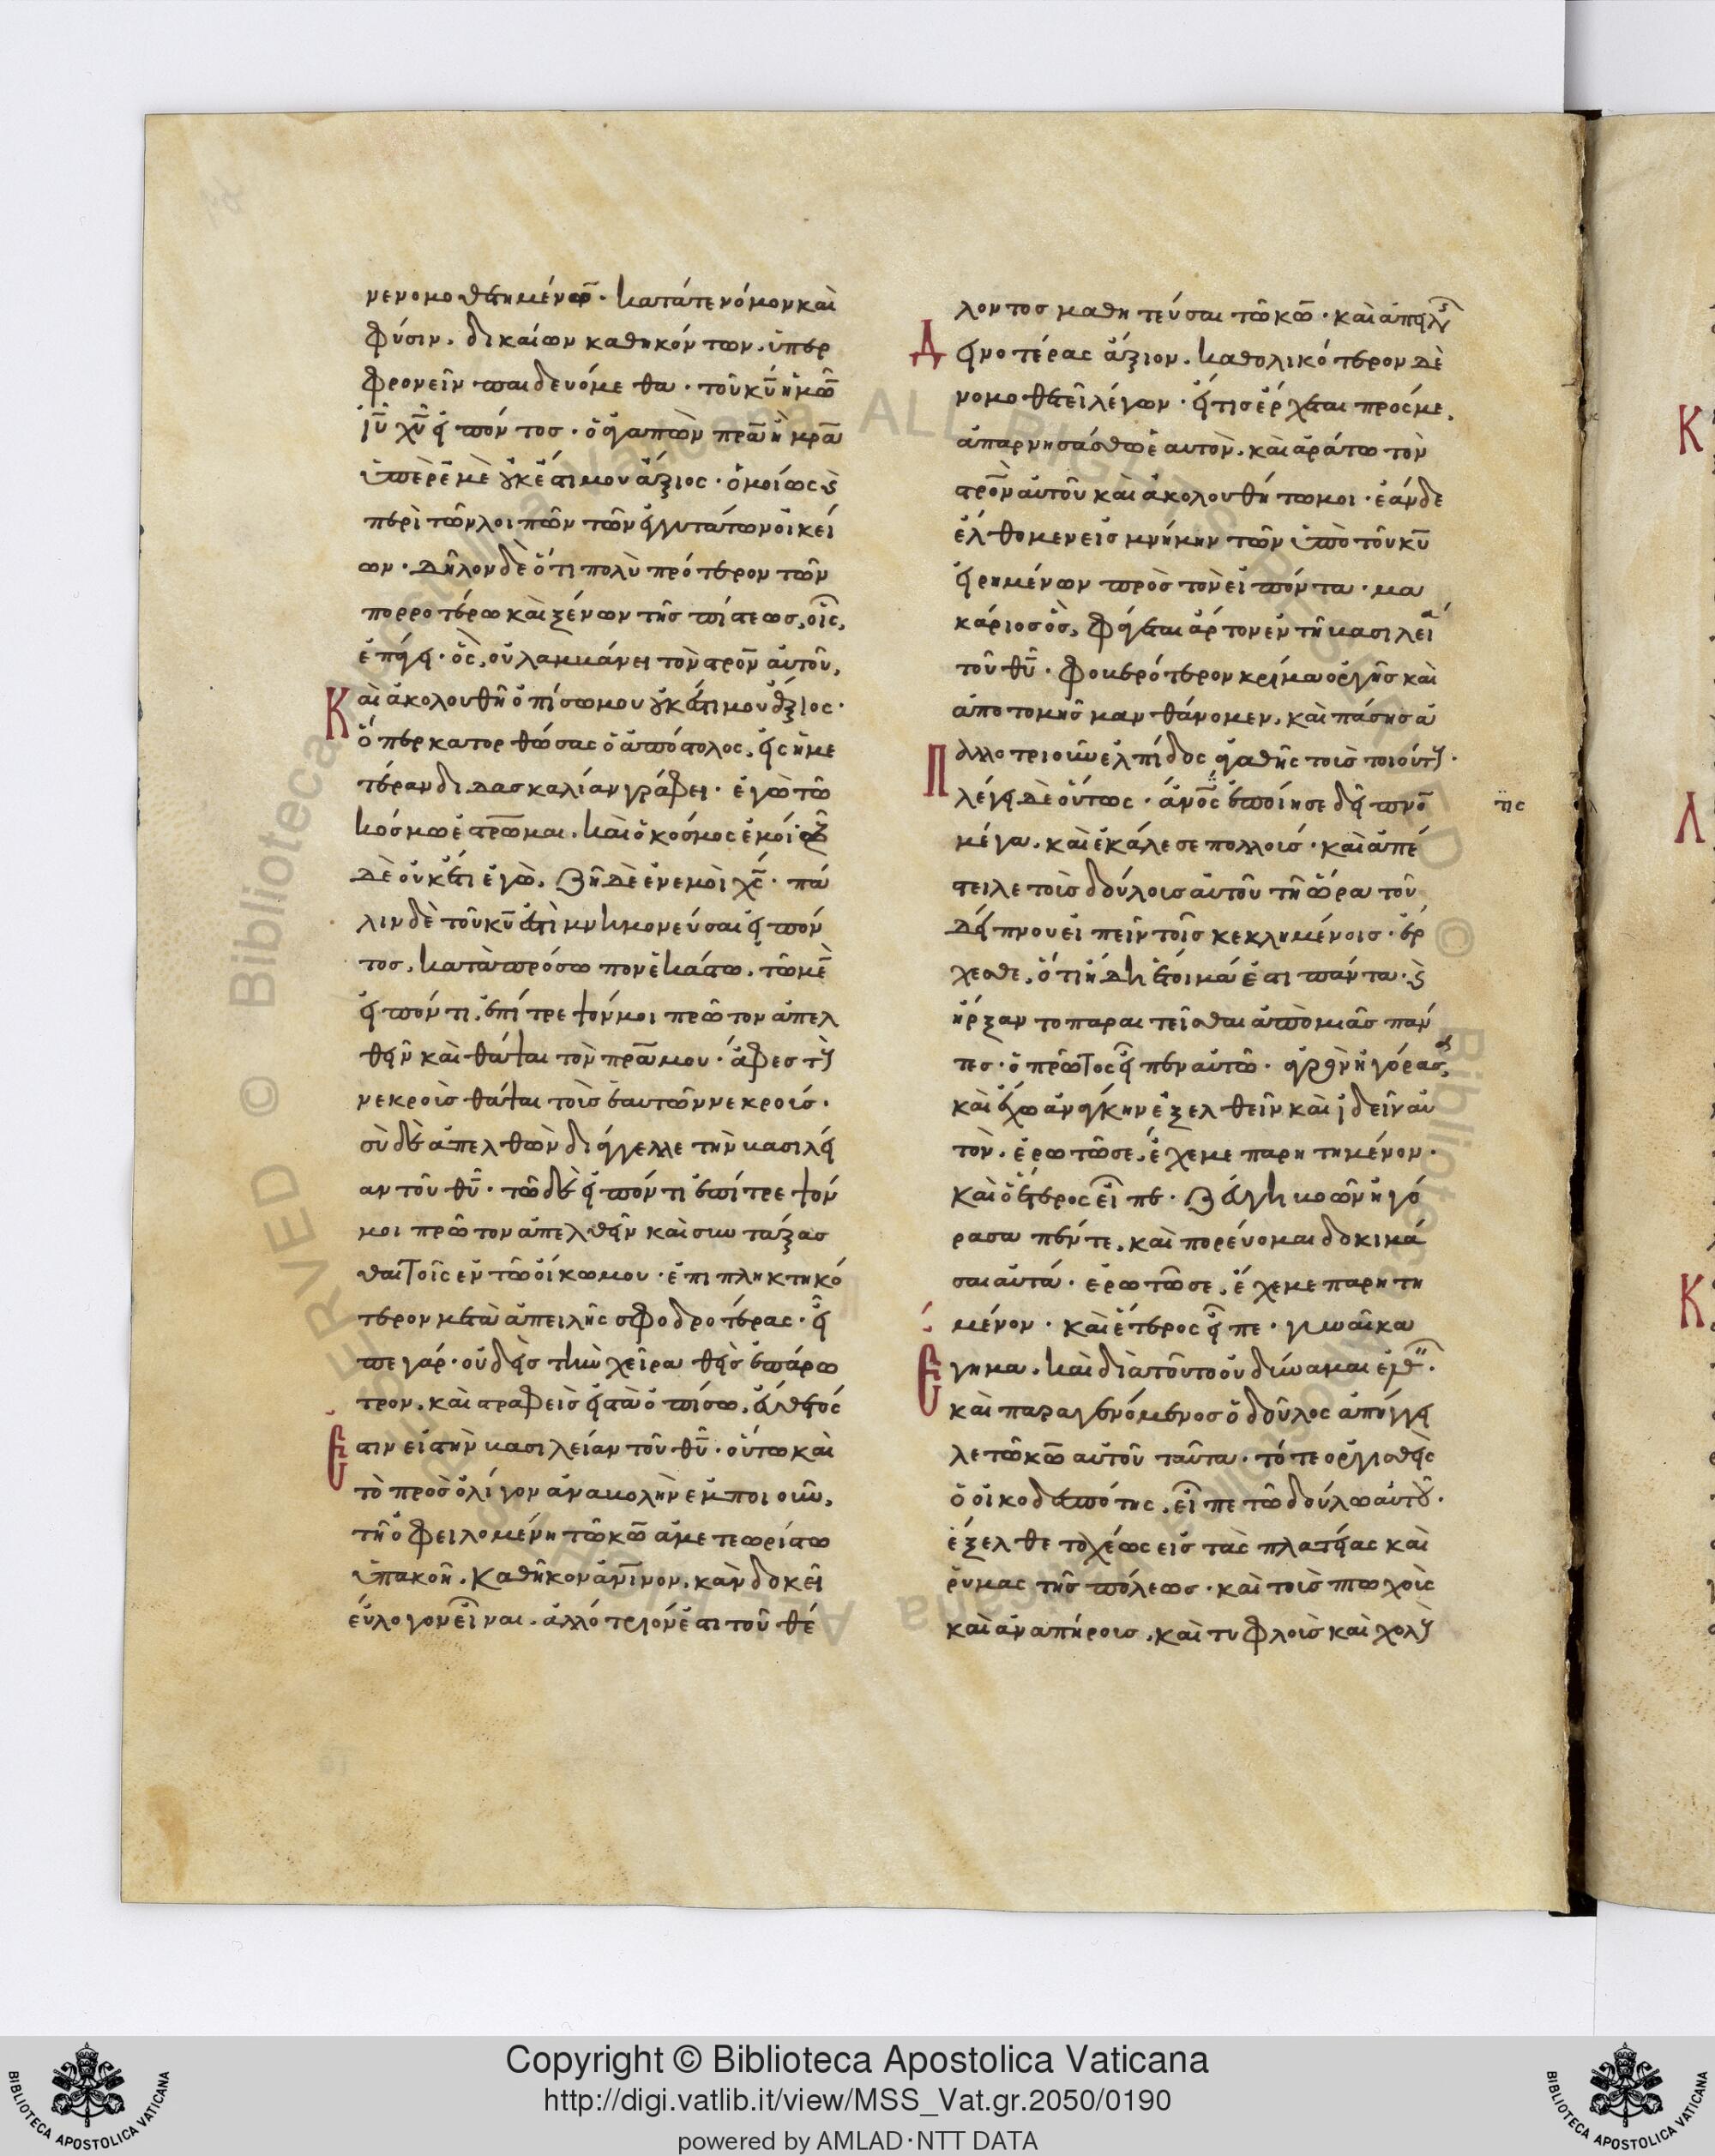 νενομοθετημένων· κατά τε νόμον καὶ
φύσιν. δικαίων καθηκόντων. ὑπερ
φρονεῖν παιδευόμεθα· τοῦ κῡ ἡμῶ̄
ἰῡ χῡ εἰπόντος· ὁ ἀγαπῶν πρ̄α ἢ μρ̄α
ὑπὲρ ἐμὲ οὐκ ἔστι μου ἄξιος· ὁμοίως ϗ
περὶ τῶν λοιπῶν τῶν ἐγγυτάτων οἰκεί
ων· δῆλον δὲ ὅτι πολὺ πρότερον τῶν
πορροτέρω καὶ ξένων τῆς πίστεως, οἷς,
ἐπάγει· ὃς, οὐ λαμβάνει τὸν στρ̄ον αὐτοῦ,
Καὶ ἀκολουθῆ ὀπίσω μου οὐκ ἔστι μου ἄξιος·
ὅπερ κατορθώσας ὁ ἀπόστολος, εἰς ἡμε
τέραν διδασκαλίαν γράφει· ἐγὼ τῶ
κόσμω ἐστρ̄ωμαι. καὶ ὁ κόσμος ἐμοί· ζῶ
δὲ οὐκέτι ἐγὼ. ζῆ δὲ ἐν ἐμοὶ χ̄ς· πά
λιν δὲ τοῦ κῡ ἔστι μνημονεῦσαι εἰπόν
τος, κατὰ πρόσωπον ἑκάστω. τῶ μὲν
εἰπόντι, ἐπίτρεψόν μοι πρῶτον ἀπελ
θεῖν καὶ θάψαι τὸν πρ̄α μου· ἄφες τοὺς
νεκροὺς θάψαι τοὺς ἑαυτῶν νεκρούς·
σὺ δὲ ἀπελθὼν διάγγελλε τὴν βασιλεί
αν τοῦ θῡ· τῶ δὲ εἰπόντι ἐπίτρεψόν
μοι πρῶτον ἀπελθεῖν καὶ συνταξασ
θαι τοῖς ἐν τῶ οἴκω μου· ἐπιπληκτικό
τερον μετὰ ἀπειλῆς σφοδροτέρας· εἶ
πε γάρ· οὐδεὶς τὴν χεῖρα θεὶς ἐπ' ἄρο
τρον, καὶ στραφεὶς εἰς τὰ ὀπίσω, εὔθετός
Ἐστιν εἰς τὴν βασιλείαν τοῦ θῡ· οὕτω καὶ
τὸ πρὸς ὀλίγον ἀναβολὴν ἐμποιοῦν,
τῆ ὀφειλομένη τῶ κω̄ ἀμετεωρίστω
ὑπακοῆ. καθῆκον ἀν̄ινον, κἂν δοκεῖ
εὔλογον εἶναι, ἀλλότριόν ἐστι τοῦ θέ
λοντος μαθητεῦσαι τῶ κω̄· καὶ ἀπειλῆς
Δεινοτέρας ἄξιον. καθολικότερον δὲ
νομοθετεῖ λέγων· εἴ τις ἔρχεται πρός με,
ἀπαρνησάσθω ἑαυτὸν, καὶ ἀράτω τὸν
στρ̄ον αὐτοῦ καὶ ἀκολουθήτω μοι· ἐάν δε
ἔλθομεν εἰς μνήμην τῶν ὑπὸ τοῦ κῡ
εἰρημένων πρὸς τὸν εἰπόντα· μα
κάριος ὃς, φάγεται ἄρτον ἐν τῆ βασιλεία
τοῦ θῡ· φοβερότερον κρίμα ὀργῆς καὶ
ἀποτομῆς μανθάνομεν, καὶ πάσης ἀ
Παλλοτριοῦν ἐλπίδος ἀγαθῆς τοὺς τοιούτους·
λέγει δὲ οὕτως· ἄν̄ος ἐποίησε δεῖπνο̄
της
μέγα, καὶ ἐκάλεσε πολλούς· καὶ ἀπέ
στειλε τοὺς δούλους αὐτοῦ τῆ ὥρα τοῦ
δείπνου εἰπεῖν τοῖς κεκλημένοις· ἔρ
χεσθε, ὅτι ἤδη ἕτοιμά ἐστι πάντα· ϗ
ἤρξαντο παραιτεῖσθαι ἀπὸ μιᾶς πάν
τες· ὁ πρῶτος εἶπεν αὐτῶ· ἀγρὸν ἠγόρασα,
καὶ ἔχω ἀνάγκην ἐξελθεῖν καὶ ἰδεῖν αὐ
τὸν, ἐρωτῶ σε, ἔχε με παρητημένον·
καὶ ὁ ἕτερος εἶπε· ζεύγη βοῶν ἠγό
ρασα πέντε, καὶ πορεύομαι δοκιμά
σαι αὐτά· ἐρωτῶ σε, ἔχε με παρητη
μένον· καὶ ἕτερος εἶπε· γυναῖκα
Ἔγημα. καὶ διὰ τοῦτο οὐ δύναμαι ἐλθεῖν·
καὶ παραγενόμενος ὁ δοῦλος ἀπήγγει
λε τῶ κω̄ αὐτοῦ ταῦτα· τότε ὀργισθεὶς
ὁ οἰκοδεσπότης, εἶπε τῶ δούλω αὐτοῦ·
ἔξελθε ταχέως εἰς τὰς πλατείας καὶ
ῥύμας τῆς πόλεως· καὶ τοὺς πτωχοὺς
καὶ ἀναπήρους, καὶ τυφλοὺς καὶ χολοὺς
Copyright © Biblioteca Apostolica Vaticana
http://digi.vatlib.it/view/MSS_Vat.gr.2050/0190
powered by AMLAD·NTT DATA